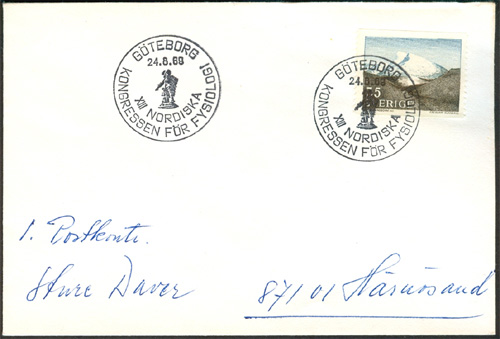 GÖTEBORG
24.8.68
XIII NORDISKA
KONGRESSEN FÖR FYSIOLOGI
GÖTEBORG
24.8.68
XIII NORDISKA
KONGRESSEN FÖR FYSIOLOGI
75
SVERIGE
1. Postkont.
Sture Daver
871 01 Härnösand